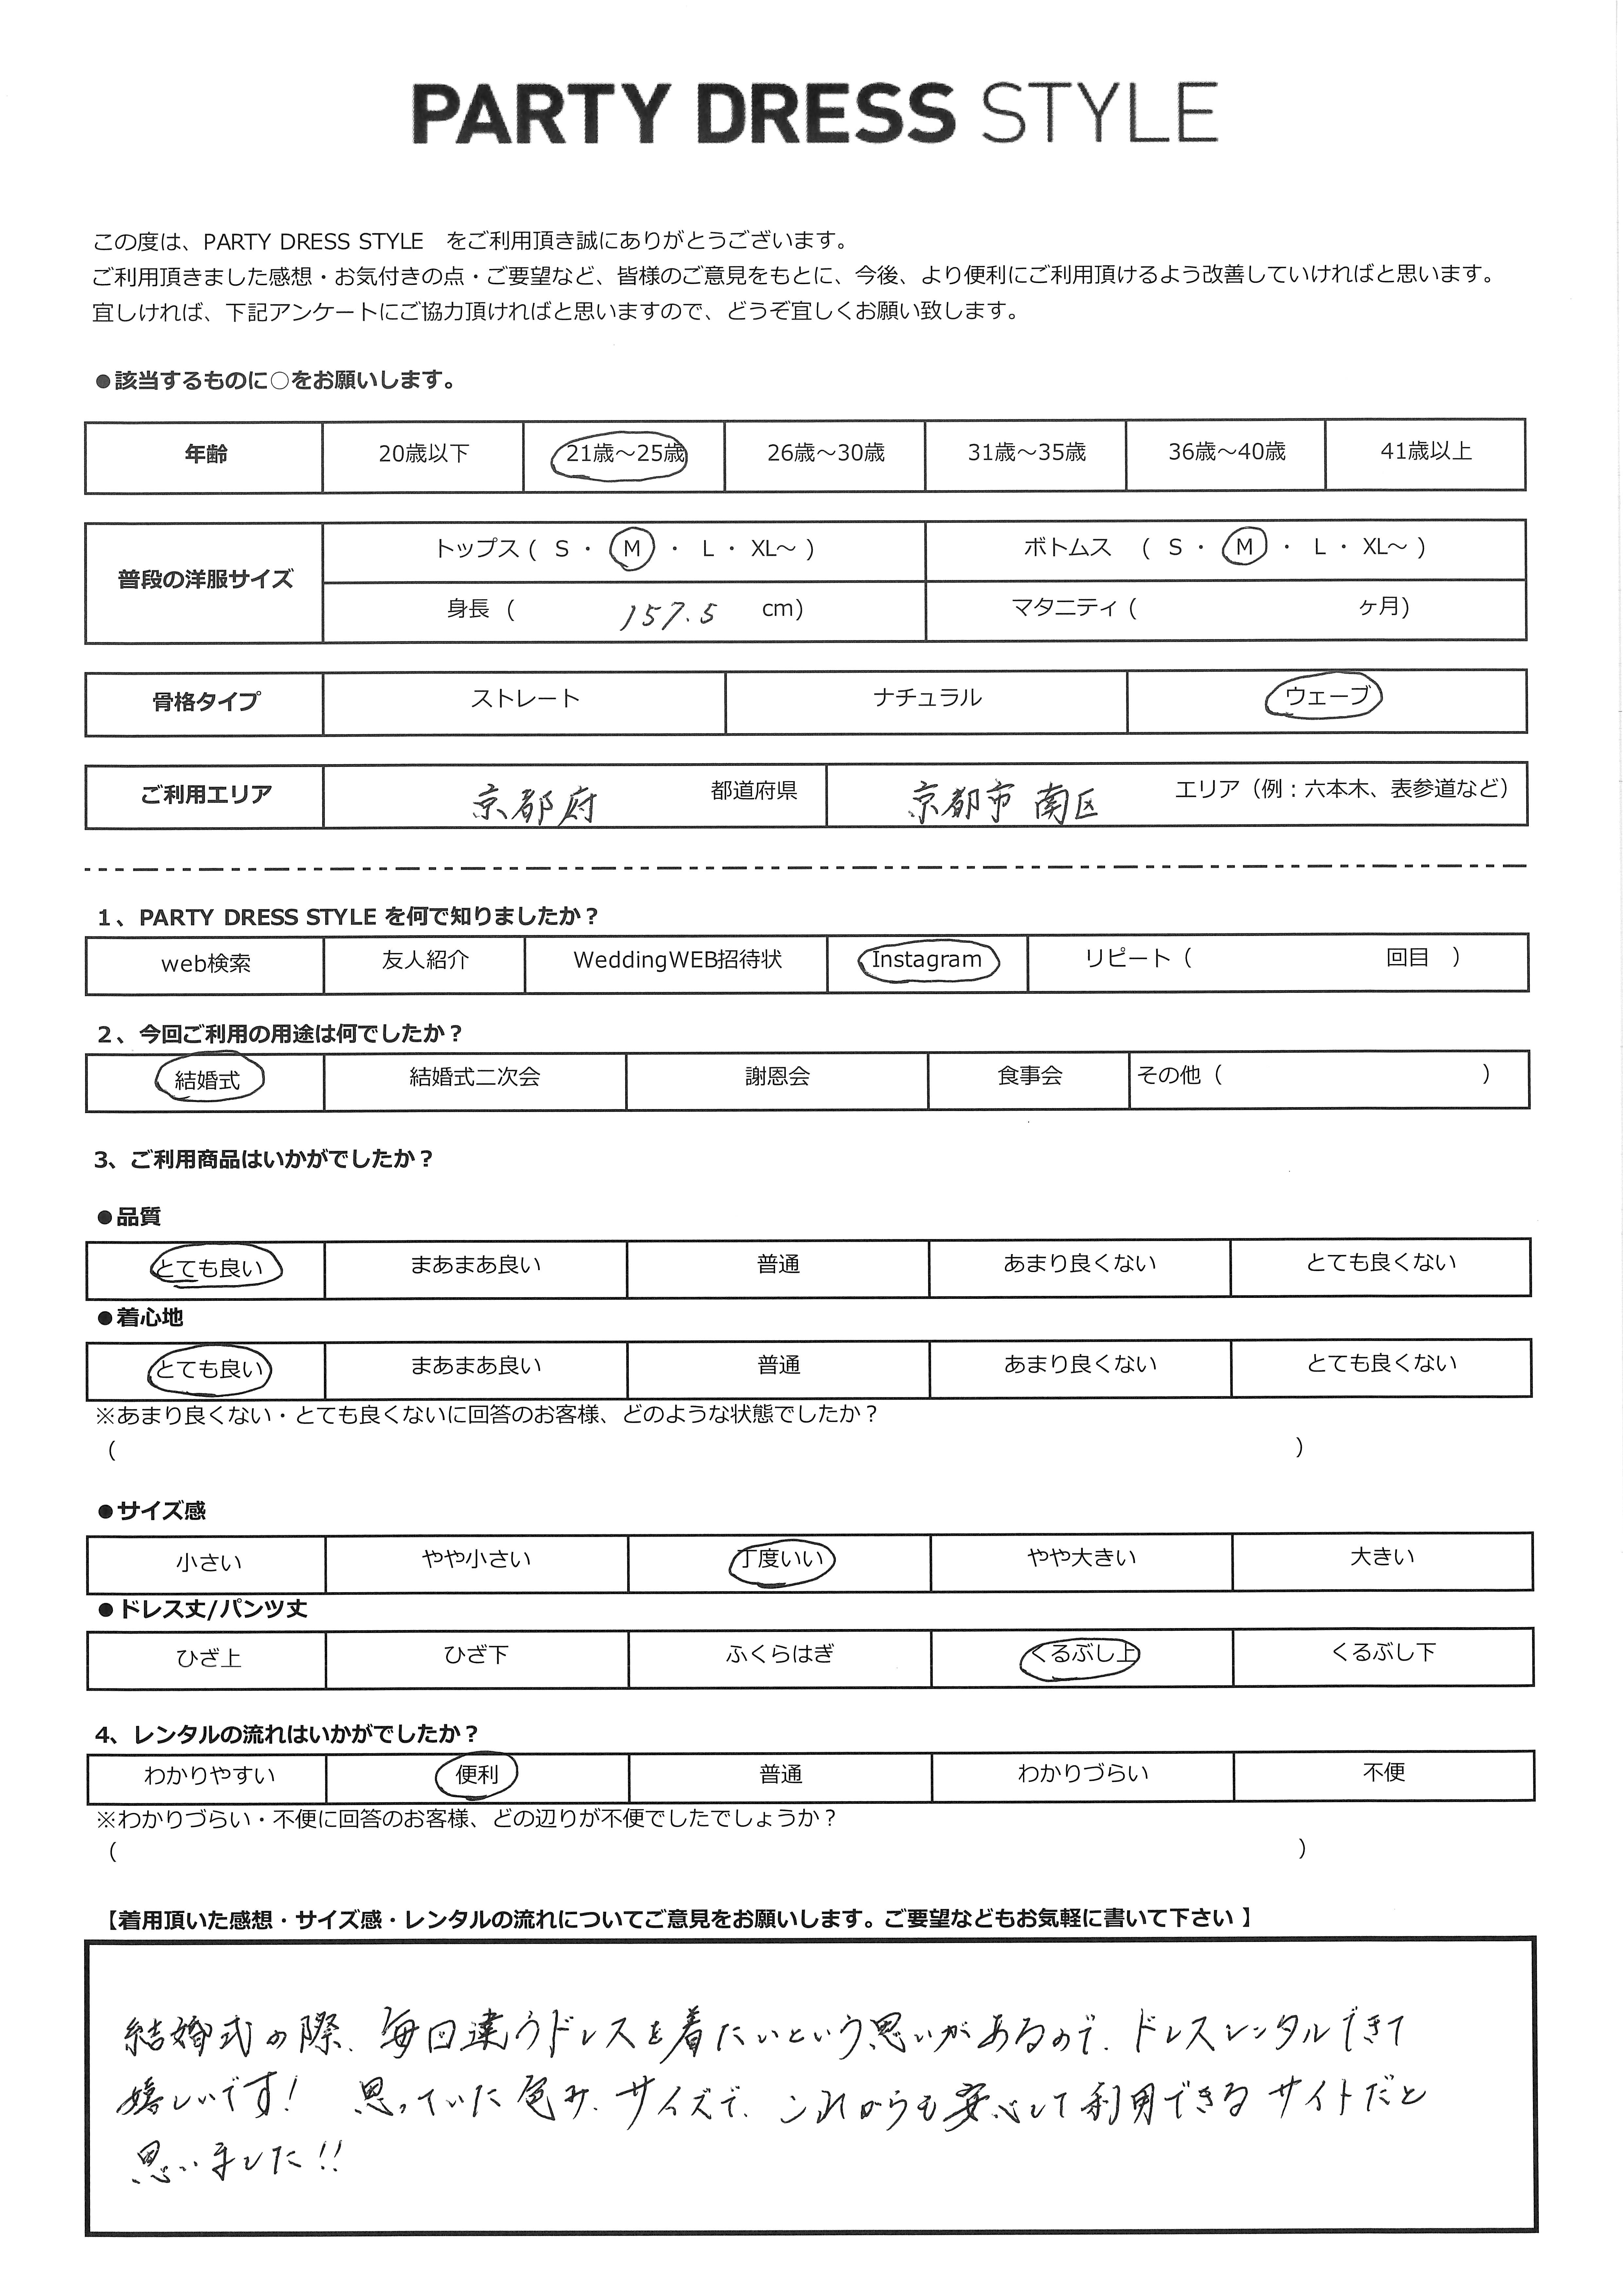 PARTY DRESS STYLE
この度は、PARTY DRESS STYLE　をご利用頂き誠にありがとうございます。
ご利用頂きました感想・お気付きの点・ご要望など、皆様のご意見をもとに、今後、より便利にご利用頂けるよう改善していければと思います。
宜しければ、下記アンケートにご協力頂ければと思いますので、どうぞ宜しくお願い致します。
●該当するものに○をお願いします。
年齢 20歳以下 21歳～25歳 26歳～30歳 31歳～35歳 36歳～40歳 41歳以上
普段の洋服サイズ
トップス ( S ・ M ・ L ・ XL～ ) ボトムス ( S ・ M ・ L ・ XL～ )
身長 ( 157.5 cm) マタニティ ( ヶ月)
骨格タイプ ストレート ナチュラル ウェーブ
ご利用エリア 京都府 都道府県 京都市 南区 エリア（例：六本木、表参道など）
1、PARTY DRESS STYLE を何で知りましたか？
web検索 友人紹介 WeddingWEB招待状 Instagram リピート（ 回目 ）
2、今回ご利用の用途は何でしたか？
結婚式 結婚式二次会 謝恩会 食事会 その他（ ）
3、ご利用商品はいかがでしたか？
●品質
とても良い まあまあ良い 普通 あまり良くない とても良くない
●着心地
とても良い まあまあ良い 普通 あまり良くない とても良くない
※あまり良くない・とても良くないに回答のお客様、どのような状態でしたか？
（ ）
●サイズ感
小さい やや小さい 丁度いい やや大きい 大きい
●ドレス丈/パンツ丈
ひざ上 ひざ下 ふくらはぎ くるぶし上 くるぶし下
4、レンタルの流れはいかがでしたか？
わかりやすい 便利 普通 わかりづらい 不便
※わかりづらい・不便に回答のお客様、どの辺りが不便でしたでしょうか？
（ ）
【着用頂いた感想・サイズ感・レンタルの流れについてご意見をお願いします。ご要望などもお気軽に書いて下さい 】
結婚式の際、毎回違うドレスを着たいという思いがあるので、ドレスレンタルできて
嬉しいです！ 思っていた色み、サイズで、これからも安心して利用できるサイトだと
思いました!!